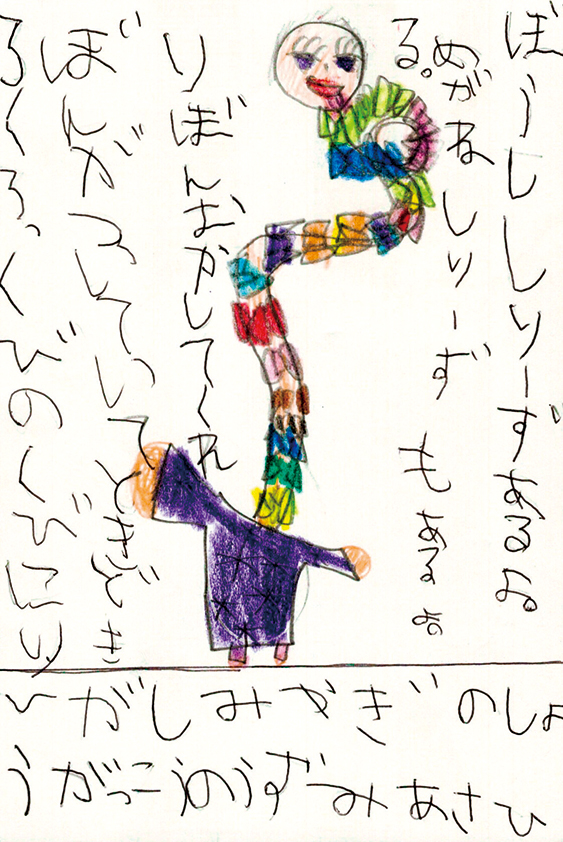 ろくろっくびのくびにり
ぼんがついていてどきどき
りぼんおかしてくれ
る。
めがねしりーずもあるよ。
ぼうししりーずあるよ。
ひがしみやぎのしょ
うがっこうのうずみあさひ